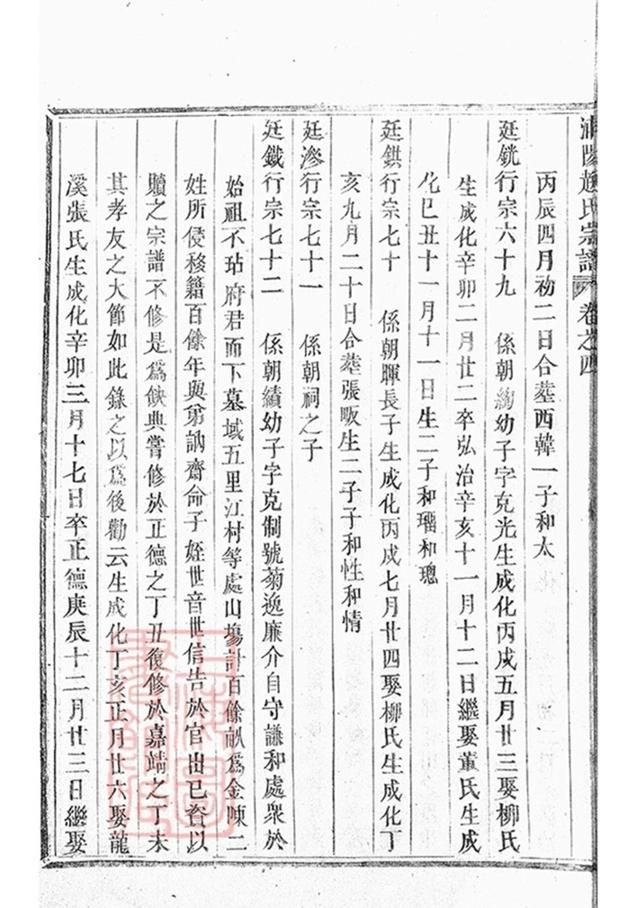 浦陽趙氏宗譜 卷之四
丙辰四月初二日合塟西韓一子和太
廷銧行宗六十九 係朝絢幼子字克光生成化丙戌五月廿三娶柳氏
生成化辛卯二月廿二卒弘治辛亥十一月十二日繼娶董氏生成
化巳丑十一月十一日生二子和瑙和璁
廷錤行宗七十 係朝暉長子生成化丙戌七月廿四娶柳氏生成化丁
亥九月二十日合塟張畈生二子子和性和情
廷滲行宗七十一 係朝祠之子
廷鐵行宗七十二 係朝績幼子字克制號菊逸廉介自守謙和處衆於
始祖不玷府君而下墓域五里江村等處山塲計百餘畝爲金陳二
姓所侵移籍百餘年與弟訥齋命子姪世音世信告於官出已資以
贖之宗譜不修是爲缺典嘗修於正德之丁丑復修於嘉靖之丁未
其孝友之大節如此錄之以爲後勸云生成化丁亥正月廿六娶龍
溪張氏生成化辛卯三月十七日卒正德庚辰十二月廿三日繼娶